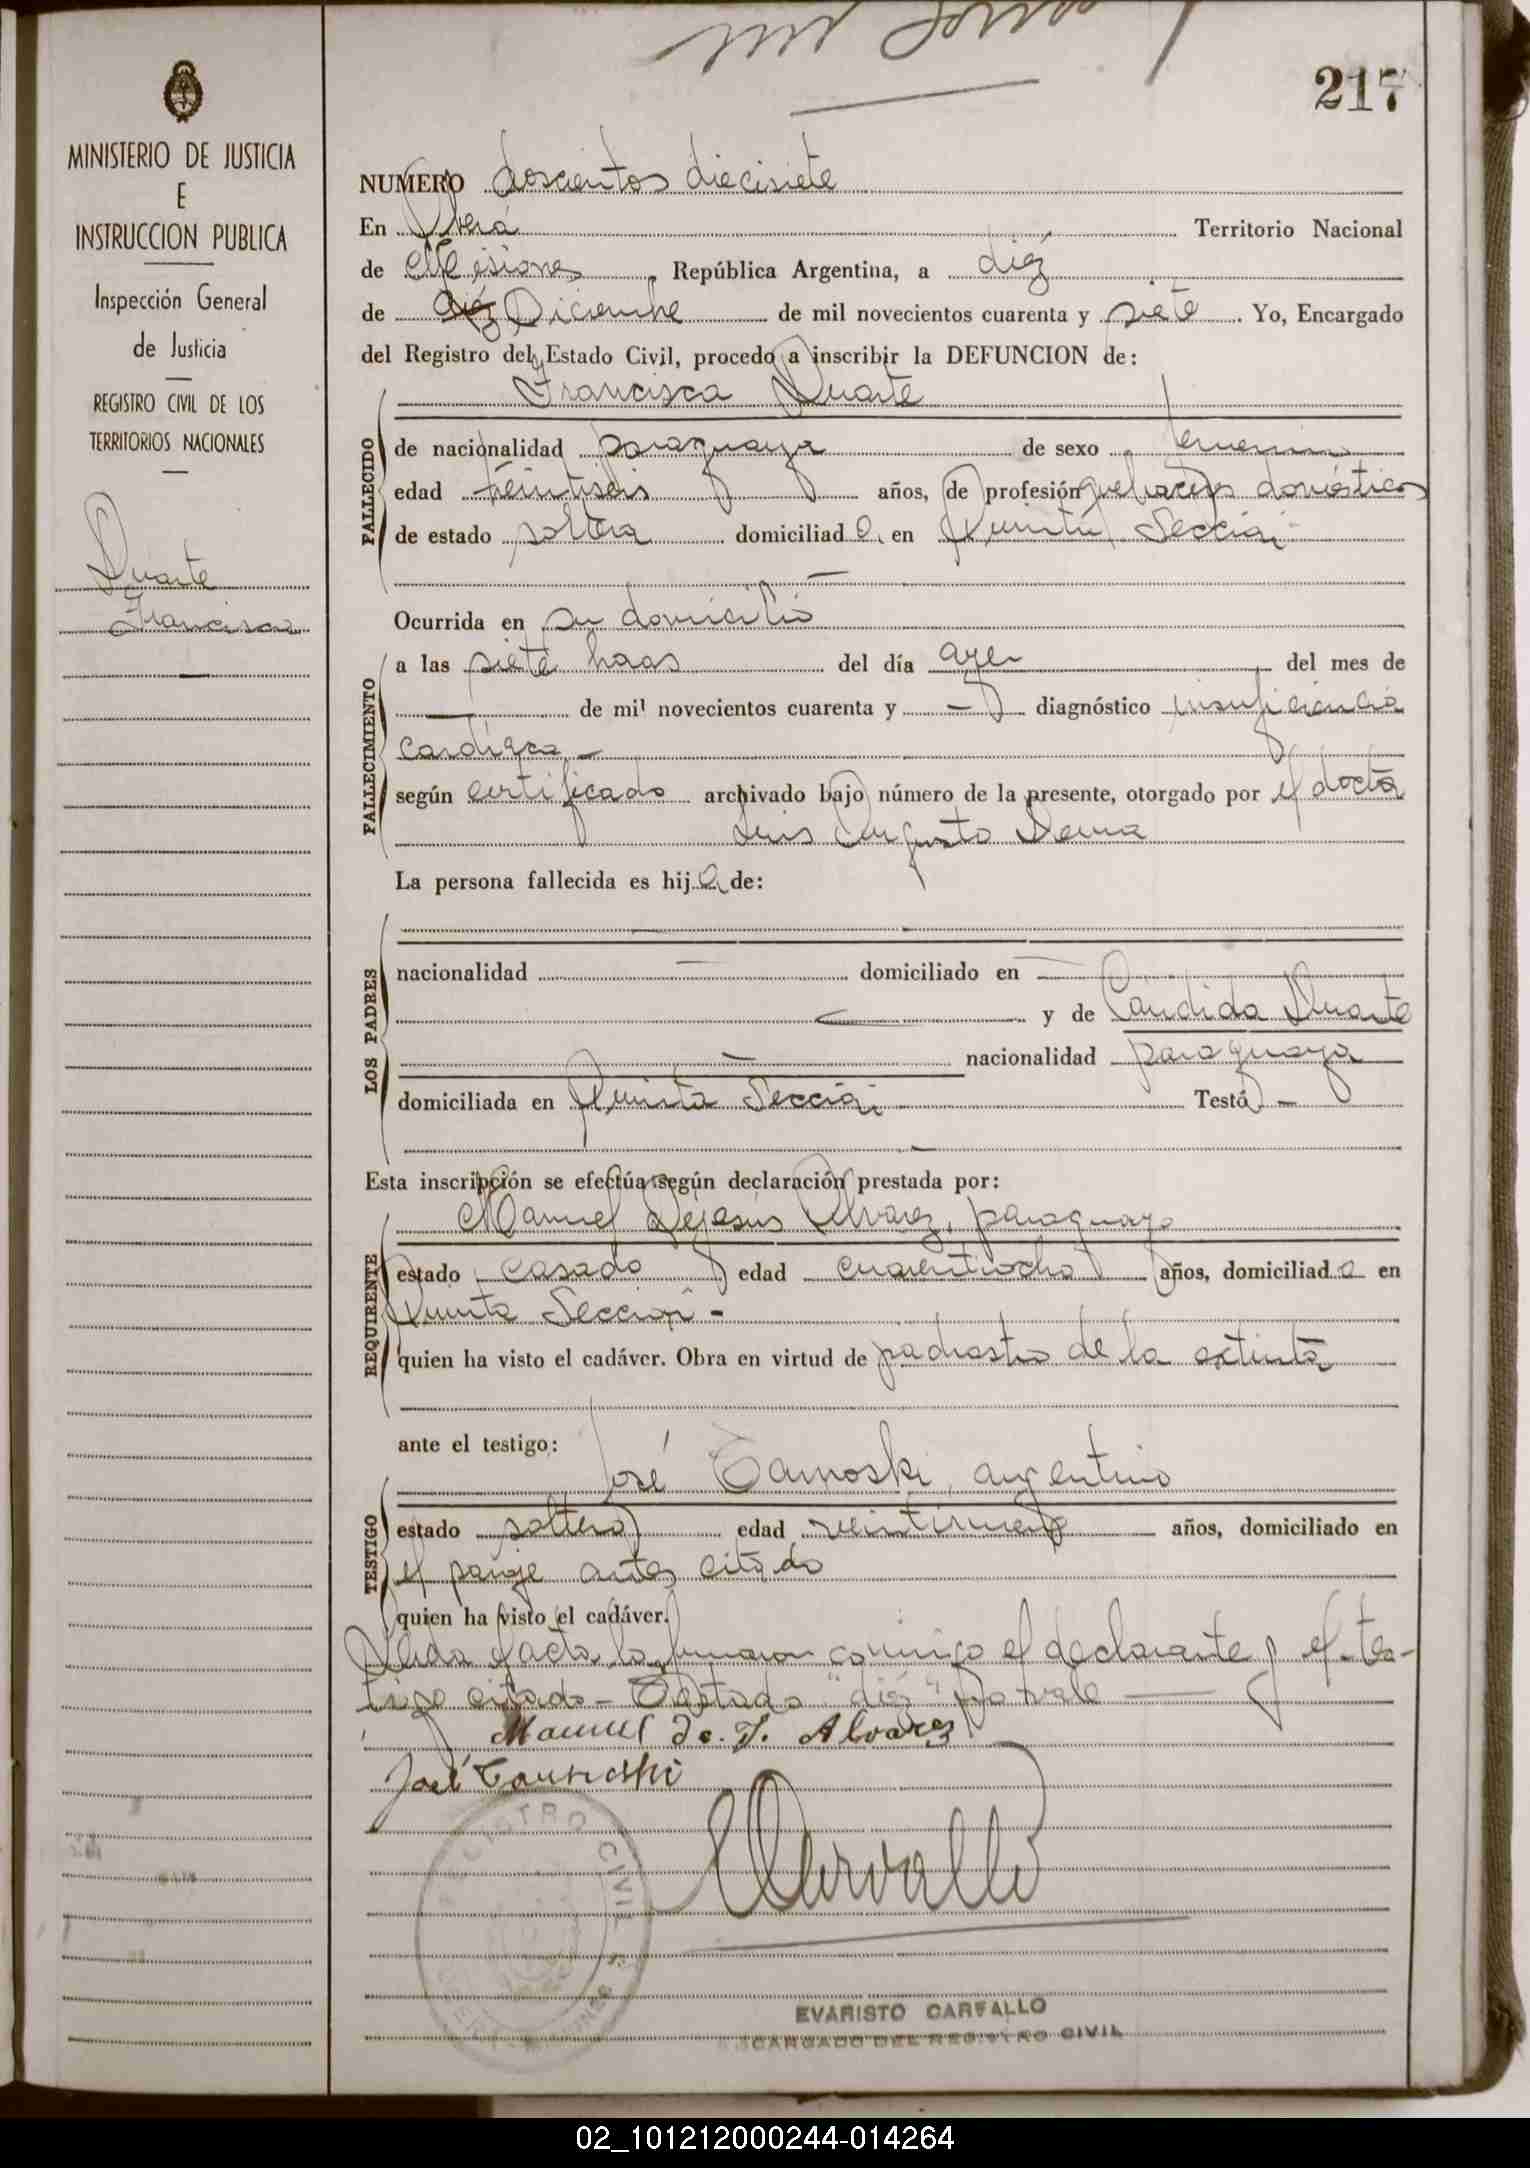 217
MINISTERIO DE JUSTICIA
E
INSTRUCCION PUBLICA
Inspección General
de Justicia
REGISTRO CIVIL DE LOS
TERRITORIOS NACIONALES
Duarte
Francisca
NUMERO doscientos diecisiete
En Oberá Territorio Nacional
de Misiones, República Argentina, a diéz
de diéz Diciembre de mil novecientos cuarenta y siete. Yo, Encargado
del Registro del Estado Civil, procedo a inscribir la DEFUNCION de:
Francisca Duarte
FALLECIDO
de nacionalidad paraguaya de sexo femenino
edad años, de profesión quehaceres domésticos
de estado soltera domiciliada en Quinta Sección
Ocurrida en su domicilio
FALLECIMIENTO
a las siete horas del día ayer del mes de
— de mil novecientos cuarenta y — diagnóstico insuficiencia
cardíaca —
según certificado archivado bajo número de la presente, otorgado por el doctor
Luis Augusto
La persona fallecida es hija de:
LOS PADRES
nacionalidad — domiciliado en —
— y de Cándida Duarte
— nacionalidad paraguaya
domiciliada en Quinta Sección Testó —
Esta inscripción se efectúa según declaración prestada por:
REQUIRENTE
Manuel Dejesús Alvarez, paraguayo
estado casado edad cuarentiocho años, domiciliado en
Quinta Sección -
quien ha visto el cadáver. Obra en virtud de padrastro de la extinta
ante el testigo:
TESTIGO
José argentino
estado soltero edad años, domiciliado en
el paraje antes citado
quien ha visto el cadáver.
Leída el acta, la firmaron conmigo el declarante y el tes-
tigo citado - Testado "diéz" no vale —
Manuel De. J. Alvarez
José
REGISTRO CIVIL
EVARISTO CARVALLO
ENCARGADO DEL REGISTRO CIVIL
02_101212000244-014264